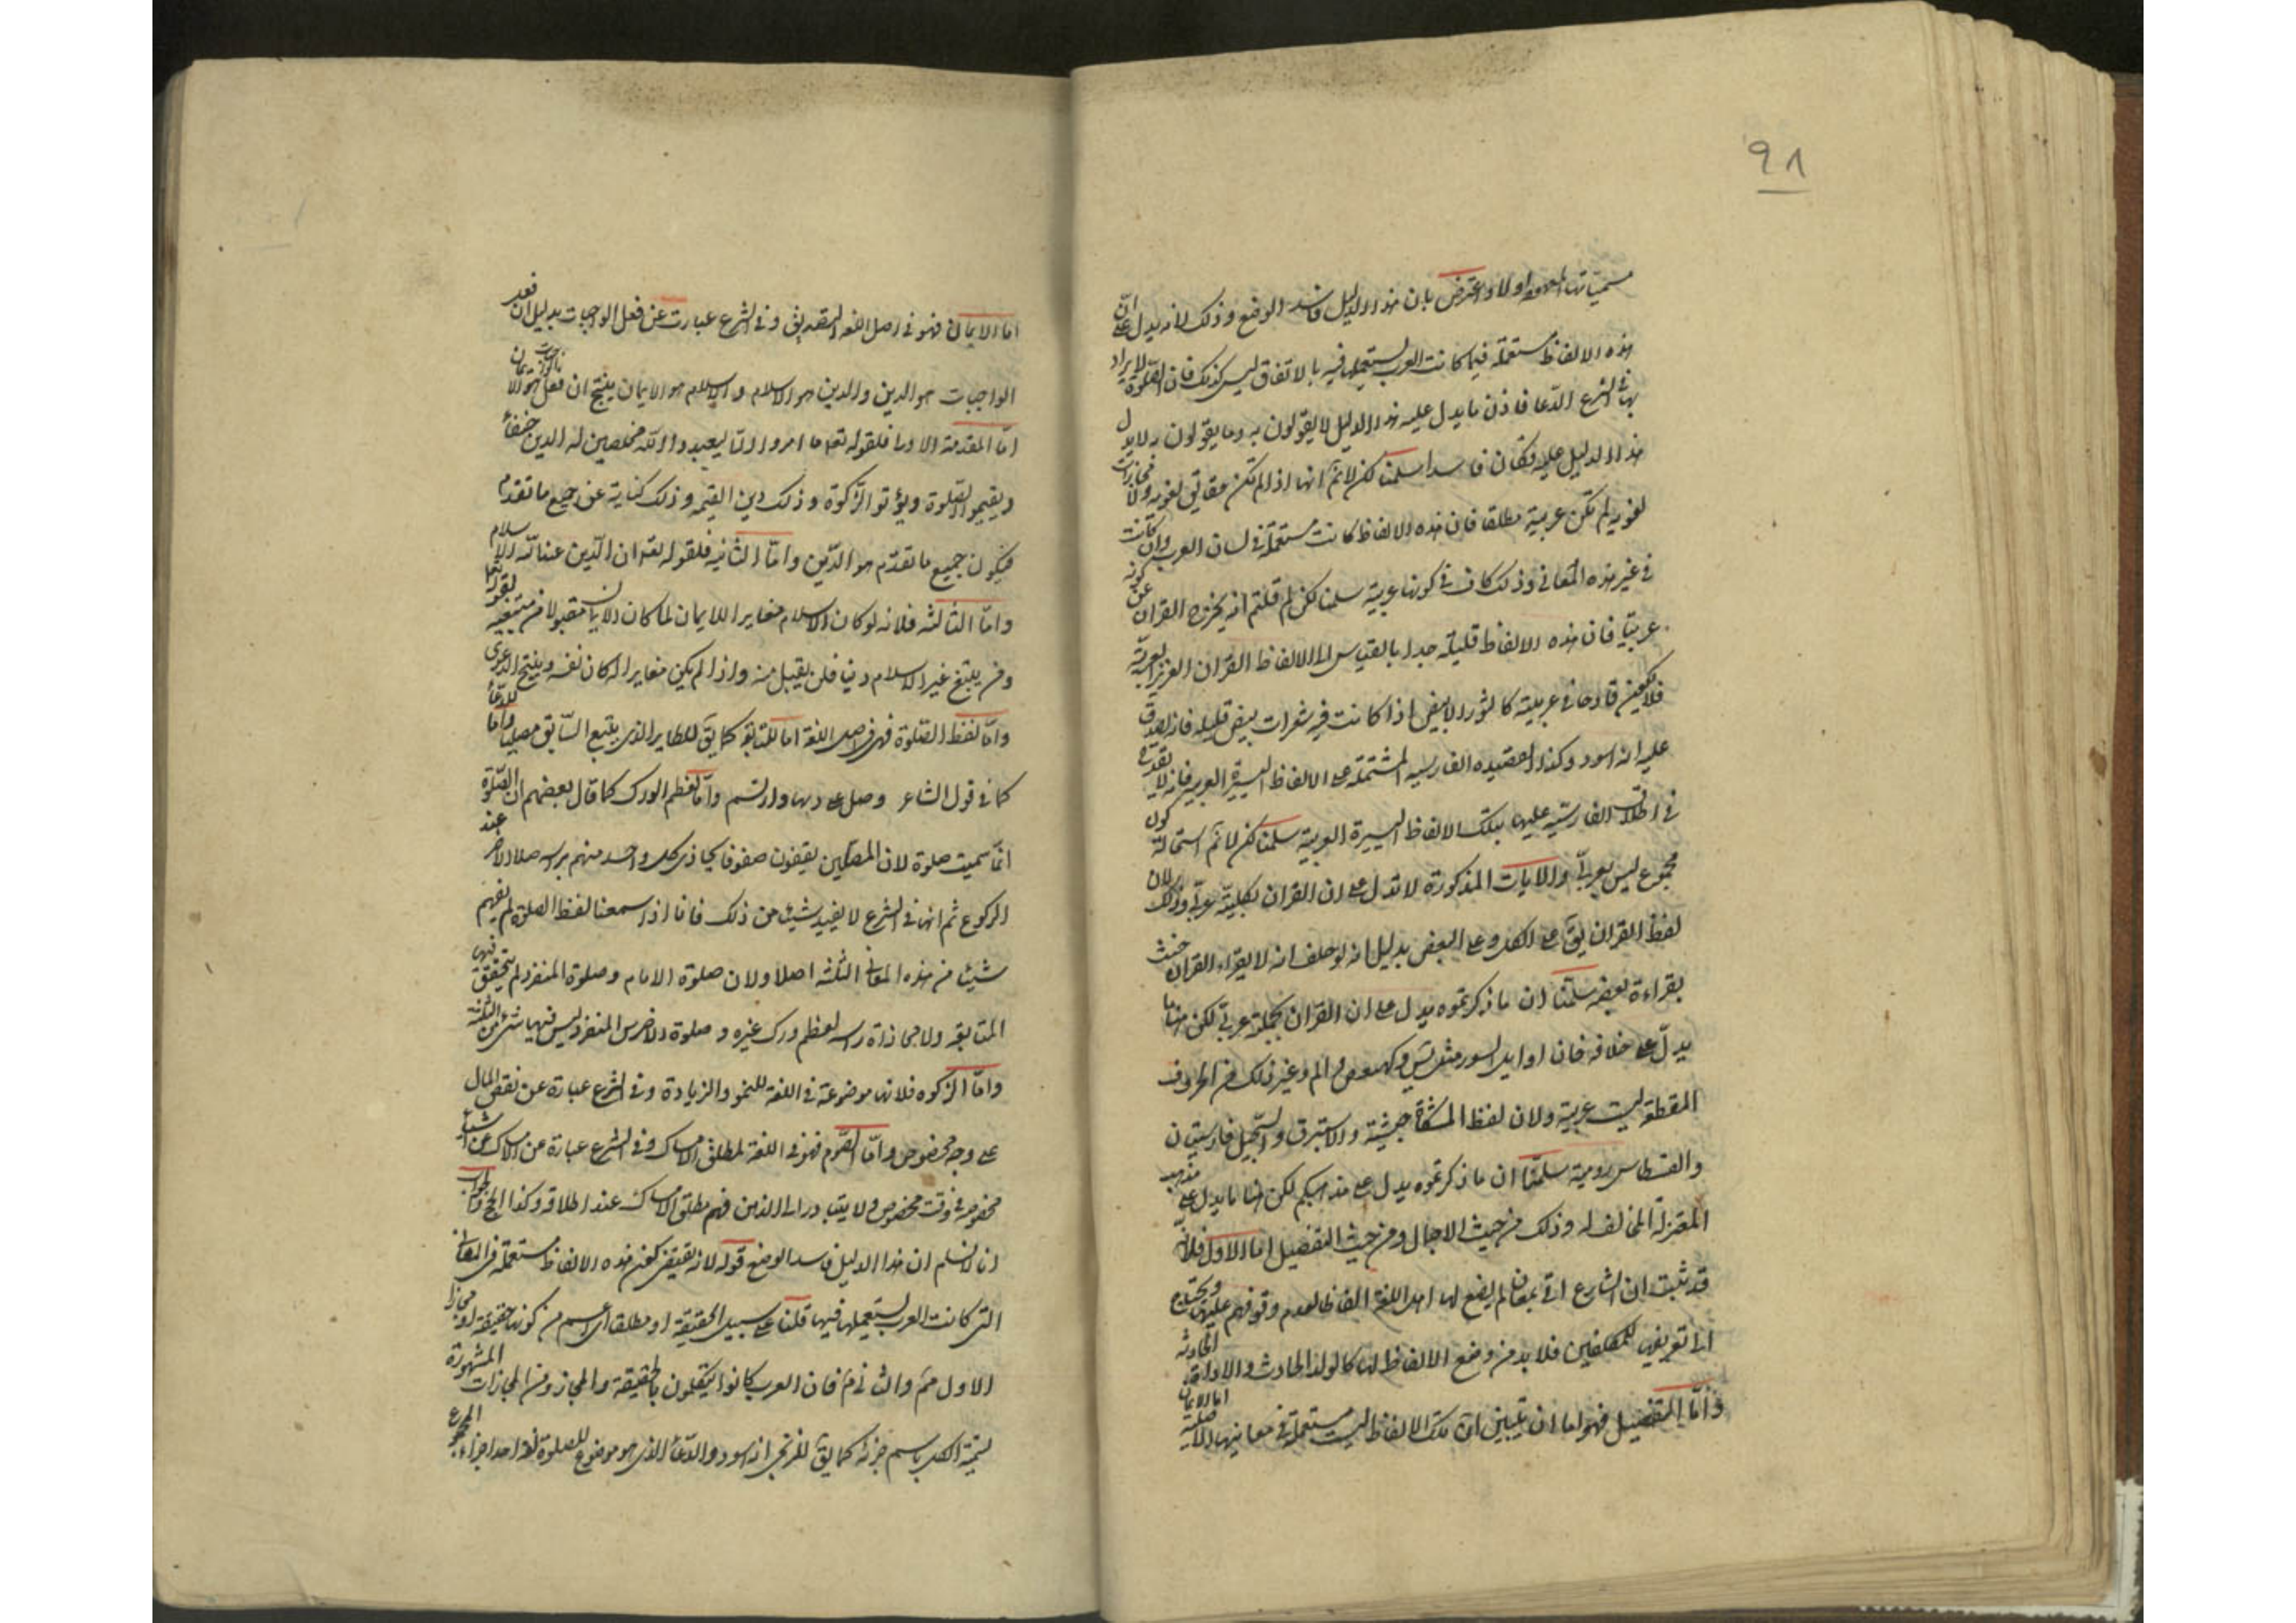 ٩٨
مسمياتها المعهودة اولا واعترض بان هذا الدليل فاسد الوضع وذلك لانه يدل على ان
هذه الالفاظ مستعملة فيما كانت العرب يستعملها فيه بالاتفاق ليس كذلك فان الصلوة لا يراد
بها في الشرع الدعا فاذن ما يدل عليه هذا الدليل لا يقولون به وما يقولون به لا يدل
هذا الدليل عليه فكان فاسدا سلمنا لكن لا نم انها اذا لم تكن حقايق لغوية ولا مجازات
لغوية لم تكن عربية مطلقا فان هذه الالفاظ كانت مستعملة في لسان العرب وان كانت
في غير هذه المعاني وذلك كاف في كونها عربية سلمنا لكن لم قلتم انه يخرج القران عن كونه
عربيا فان هذه الالفاظ قليلة جدا بالقياس الى الالفاظ القران العزيز العربية
فلا يكون قادحا في عربيته كالثور الابيض اذا كانت فيه شعرات بيض قليلة فانه يصدق
عليه انه اسود وكذا القصيدة الفارسية المشتملة على الالفاظ اليسيرة العربية فانه لا يقدح
في اطلاق الفارسية عليها بتلك الالفاظ اليسيرة العربية سلمنا لكن لا نم استحالة كون
مجموع ليس بعربي والايات المذكورة لا تدل على ان القران بكليته عربي وذلك لان
لفظ القران يق على الكل وعلى البعض بدليل انه لو حلف انه لا يقراء القران حنث
بقراءة بعضه سلمنا ان ما ذكرتموه يدل على ان القران بجملته عربي لكن هنا ما
يدل على خلافه فان اوايل السور مثل يس وكهيعص والم وغير ذلك من الحروف
المقطعة ليست عربية ولان لفظ المشكاة حبشية والاستبرق والسجيل فارسيتان
والقسطاس رومية سلمنا ان ما ذكرتموه يدل على مذهبكم لكن هنا ما يدل على مذهب
المعتزلة المخالف له وذلك من حيث الاجمال ومن حيث التفصيل اما الاول فلانه
قد ثبت ان الشارع اتى بمعان لم يضع لها اهل اللغة الفاظا لعدم وقوفهم عليها ويحتاج
الى تعريفها للمكلفين فلا بد من وضع الالفاظ لها كالولد الحادث والاداة الحادثة
واما التفصيل فهو اما ان يتبين ان تلك الالفاظ ليست مستعملة في معانيها الاصلية
اما الايمان فهو في اصل اللغة التصديق وفي الشرع عبارت عن فعل الواجبات بدليل ان فعل
الواجبات هو الدين والدين هو الاسلام والاسلام هو الايمان ينتج ان فعل الواجبات هو الايمان
اما المقدمة الاولى فلقوله تعا وما امروا الا ليعبدوا الله مخلصين له الدين حنفاء
ويقيموا الصلوة ويؤتوا الزكوة وذلك دين القيمة وذلك كناية عن جميع ما تقدم
فيكون جميع ما تقدم هو الدين واما الثانية فلقوله تعا ان الدين عند الله الاسلام
واما الثالثة فلانه لو كان الاسلام مغايرا للايمان لما كان الايمان مقبولا من مبتغيه لقوله تعا
ومن يبتغ غير الاسلام دينا فلن يقبل منه واذا لم يكن مغايرا له كان نفسه وينتج الدعوى
واما لفظ الصلوة فهي في اصل اللغة اما للمتابعة كما يق للطاير الذي يتبع السابق مصليا واما للدعاء
كما في قول الشاعر وصل على دنها وارتسم واما لعظم الورك كما قال بعضهم ان الصلوة
انما سميت صلوة لان المصلين يقفون صفوفا يحاذي كل واحد منهم براسه صلا الاخر عند
الركوع ثم انها في الشرع لا يفيد شيئ من ذلك فانا اذا سمعنا لفظ الصلوة لم نفهم
شيئ من هذه المعاني الثلثة اصلا ولان صلوة الامام وصلوة المنفرد لم يتحقق فيها
المتابعة ولا محاذاة راسه لعظم ورك غيره وصلوة الاخرس المنفرد ليس فيها شئ من الثلثة
واما الزكوة فلانها موضوعة في اللغة للنمو والزيادة وفي الشرع عبارة عن نقص المال
على وجه مخصوص واما الصوم فهو في اللغة لمطلق الامساك وفي الشرع عبارة عن الامساك عن اشياء
مخصوصة في وقت مخصوص ولا يتبادر الى الذهن فهم مطلق الامساك عند اطلاقه وكذا الحج والجواب
انا لا نسلم ان هذا الدليل فاسد الوضع قوله لانه يقتضي كون هذه الالفاظ مستعملة في المعاني
التي كانت العرب يستعملها فيها قلنا على سبيل الحقيقة او مطلقا اى اعم من كونه حقيقة او مجازا
الاول مم والثاني م فان العرب كانوا يتكلمون بالحقيقة والمجاز ومن المجازات المشهورة
تسمية الكل باسم جزئه كما يق للزنجي انه اسود والدعاء الذي هو موضوع للصلوة لغة احد اجزاء المجموع